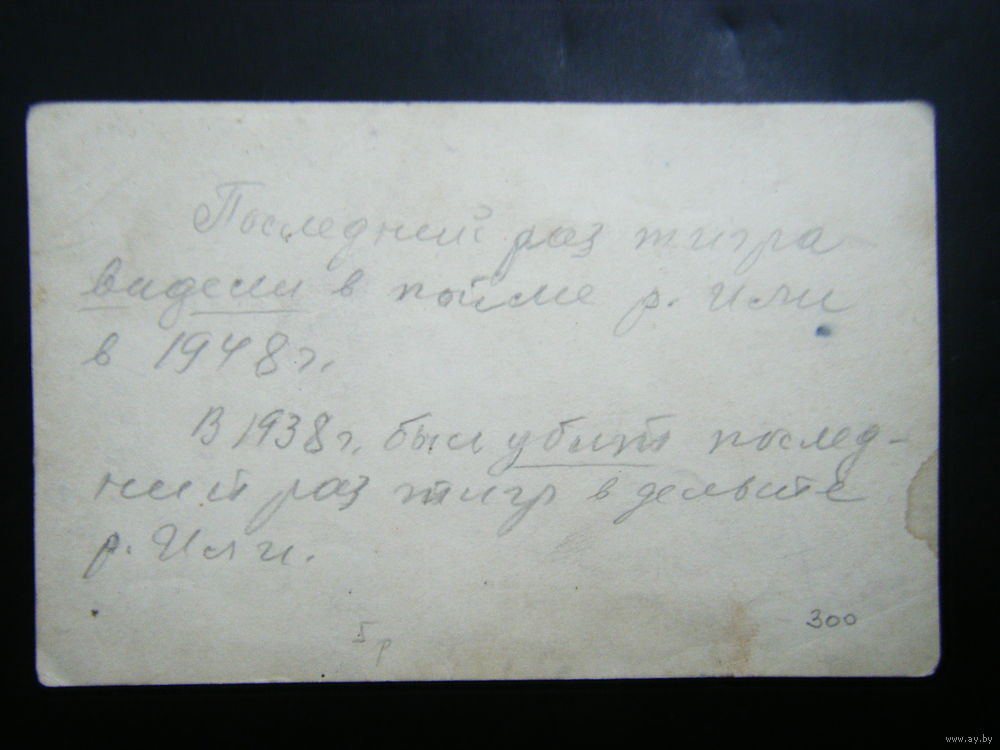 Последний раз тигра
видели в пойме р. Или
в 1948 г.
В 1938 г. был убит послед-
ний раз тигр в дельте
р. Или.
5 р
300
www.ay.by